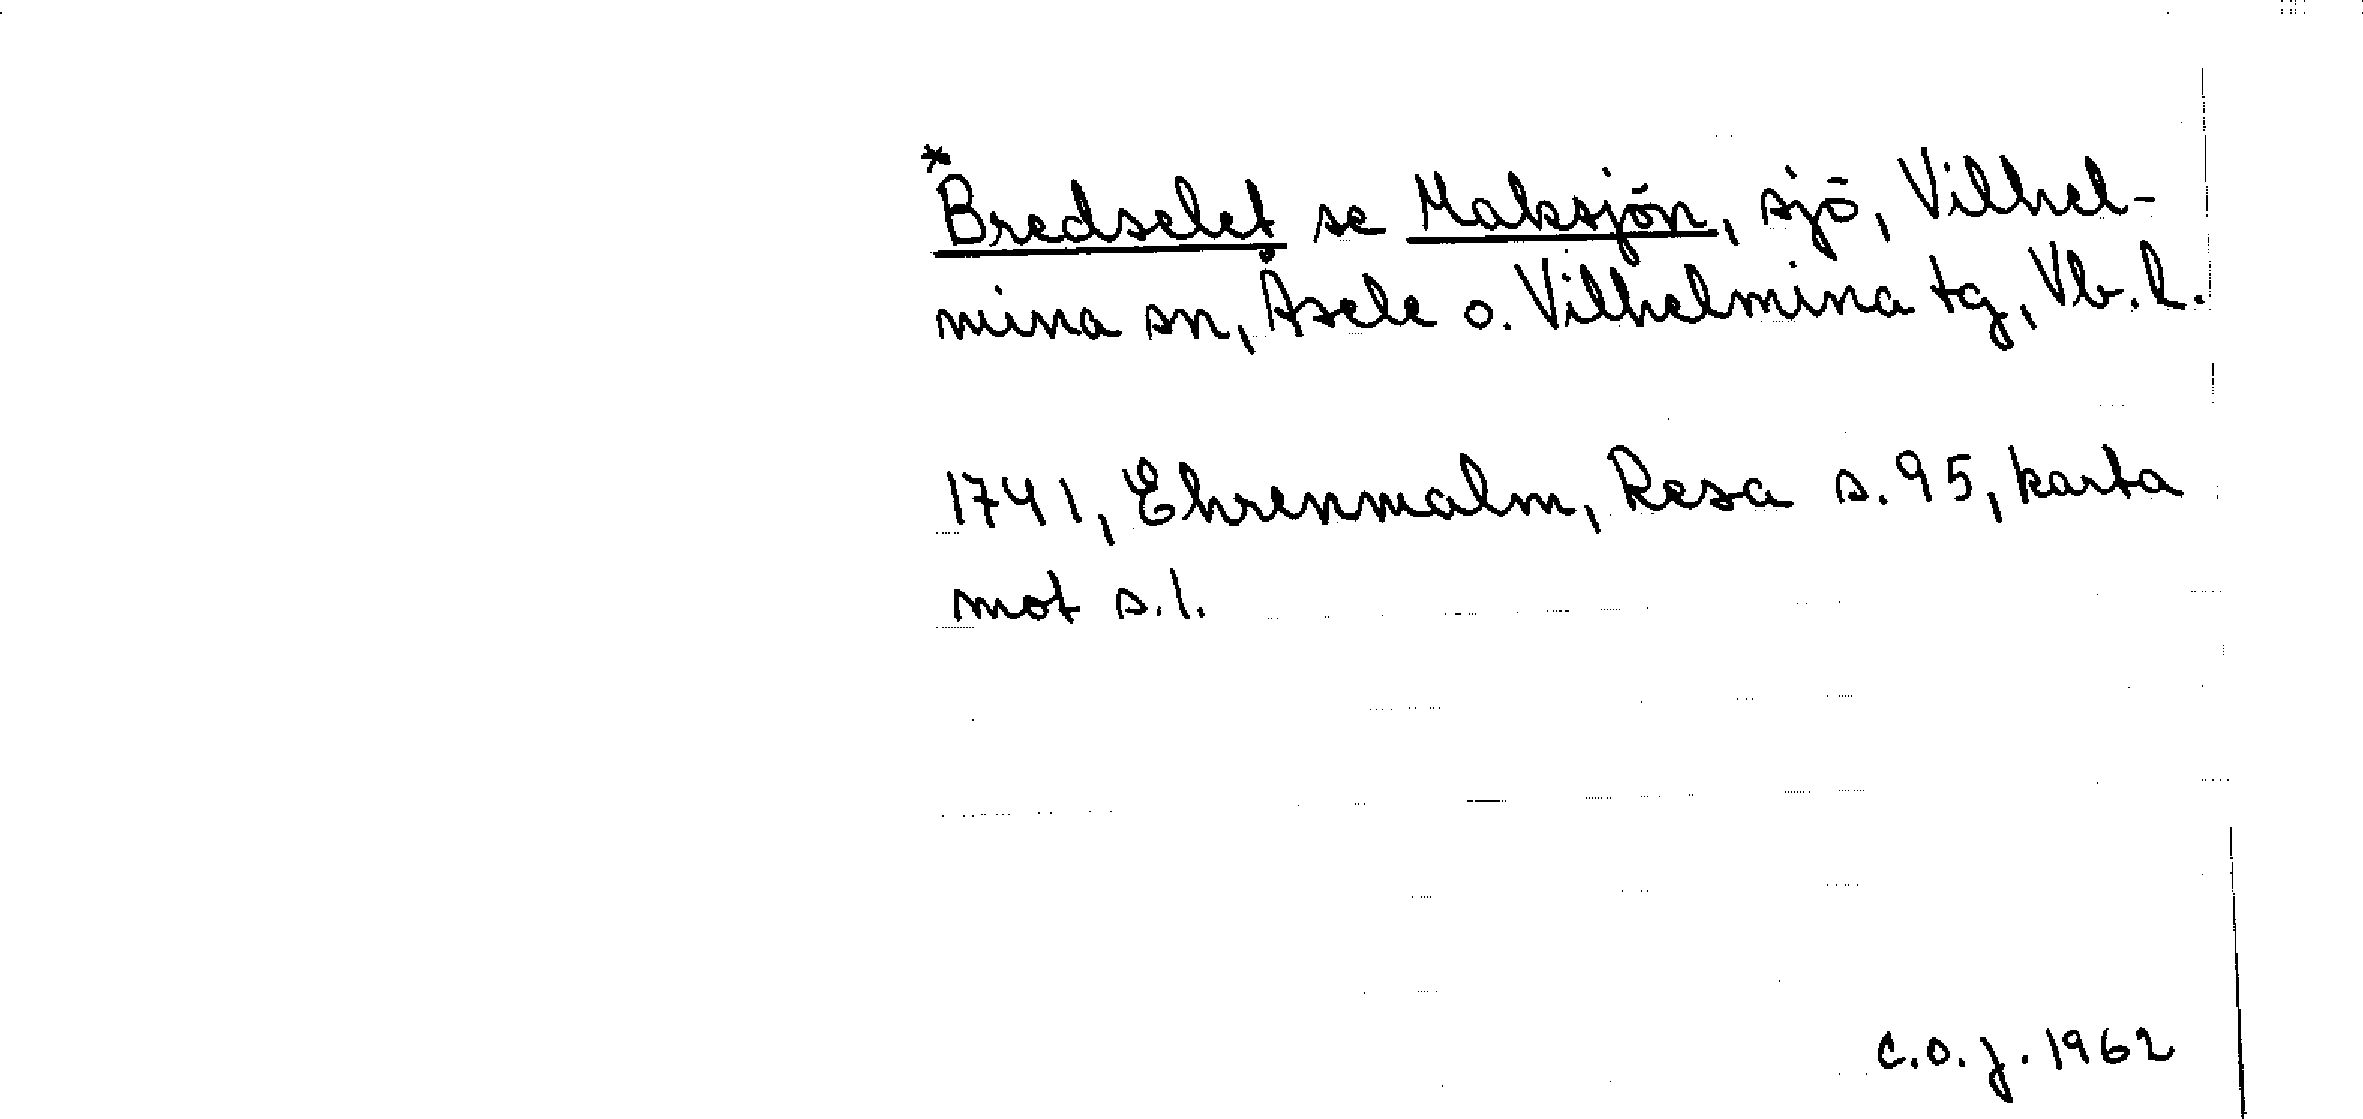 *Bredselet se Maksjön, sjö, Vilhel-
mina sn, Åsele o. Vilhelmina tg, Vb. l.
1741, Ehrenmalm, Resa s. 95, karta
mot s. 1.
C.O.J. 1962